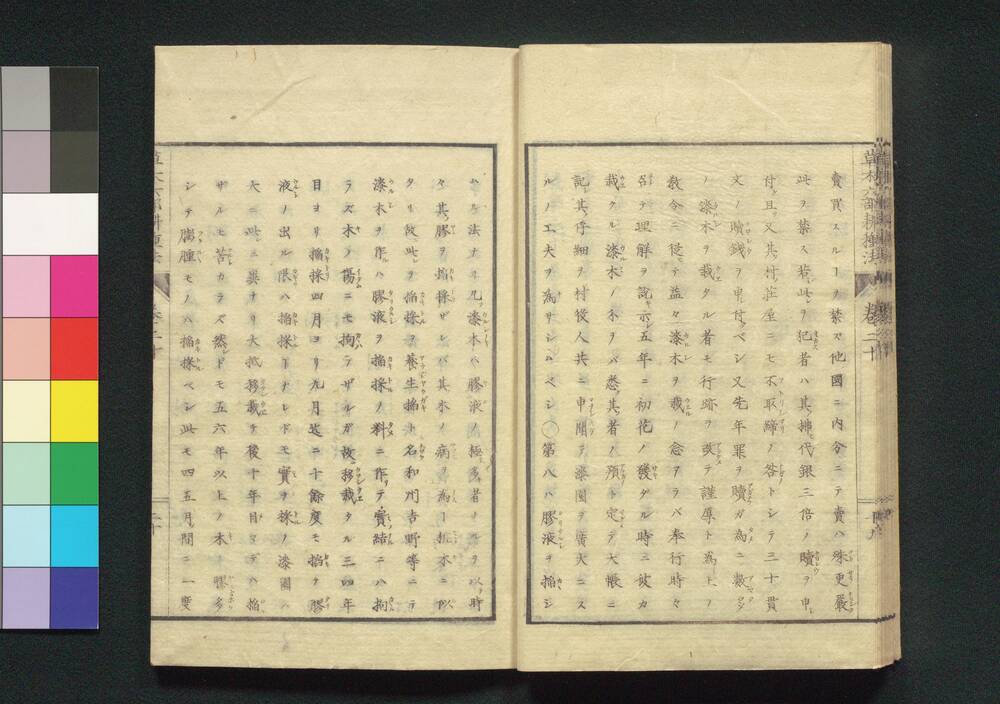 賣買スルーヲ禁ズ他國ニ内分ニテ賣ハ殊更嚴
此ヲ禁ス若此レヲ犯者ハ其揷代銀三倍ノ贖ヲ申
付且又其村莊屋ニモ不取締ノ咎トシテ三十貫
文ノ贖錢ヲ申付ベシ又先年罪ヲ贖ガ為ニ數
ノ漆木ヲ栽タル者モ行跡ヲ改テ謹厚ト為ト
教令ニ從テ益々漆木ヲ栽ノ念ヲラバ奉行時々
召テ理解ヲ說示五年ニ初花ノ發ダル時ニ彼カ
栽クル漆木ノ本ヲバ悉其者ノ預ト定テ大帳ニ
記其仔細ヲ村役人共ニ申聞テ漆園ヲ廣大ニス
ルノ工夫ヲ為サシムベシ○第八ハ膠液ヲ搔シ
ムル法ナリ凡漆木ハ膠液ノ極多者ナルヲ以時
々其膠ヲ搔採ザレバ其木ノ病ヲ為
タリ故此レヲ搔採ヲ養生搔ト名和州吉野等ニテ
漆木ヲ作ハ膠液ヲ搔採ノ料ニ作テ實結ニハ拘
ラズ木ノ傷ニモ拘ラザルガ故移栽タル三四年
目ヨリ搔採四月ヨリ九月迄ニ十餘度モ搔テ膠
液ノ出ル限ハ搔採ナレドモ實ヲ採ノ漆園ハ
大ニ此ニ異ナリ大抵移栽テ後十年目マデハ搔
ザルモ苦カラズ然レドモ五六年以上ノ木ニ膠多
シテ臃腫モノハ搔採ベシ此モ四五月間ニ一度
草木六部耕種法 卷二十